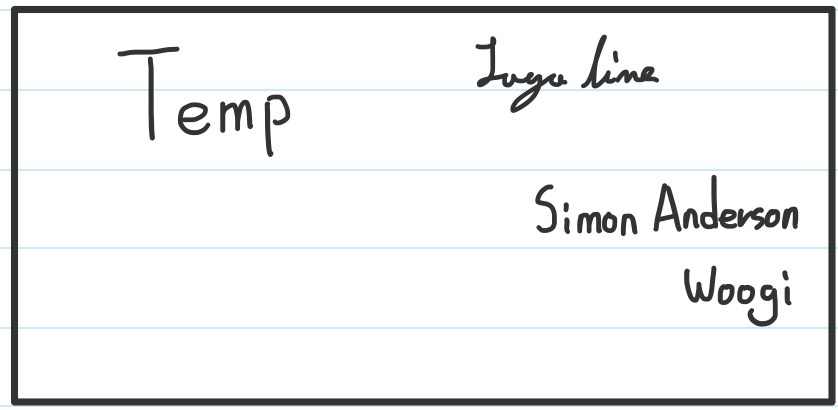 Temp
line
Simon Anderson
Woogi